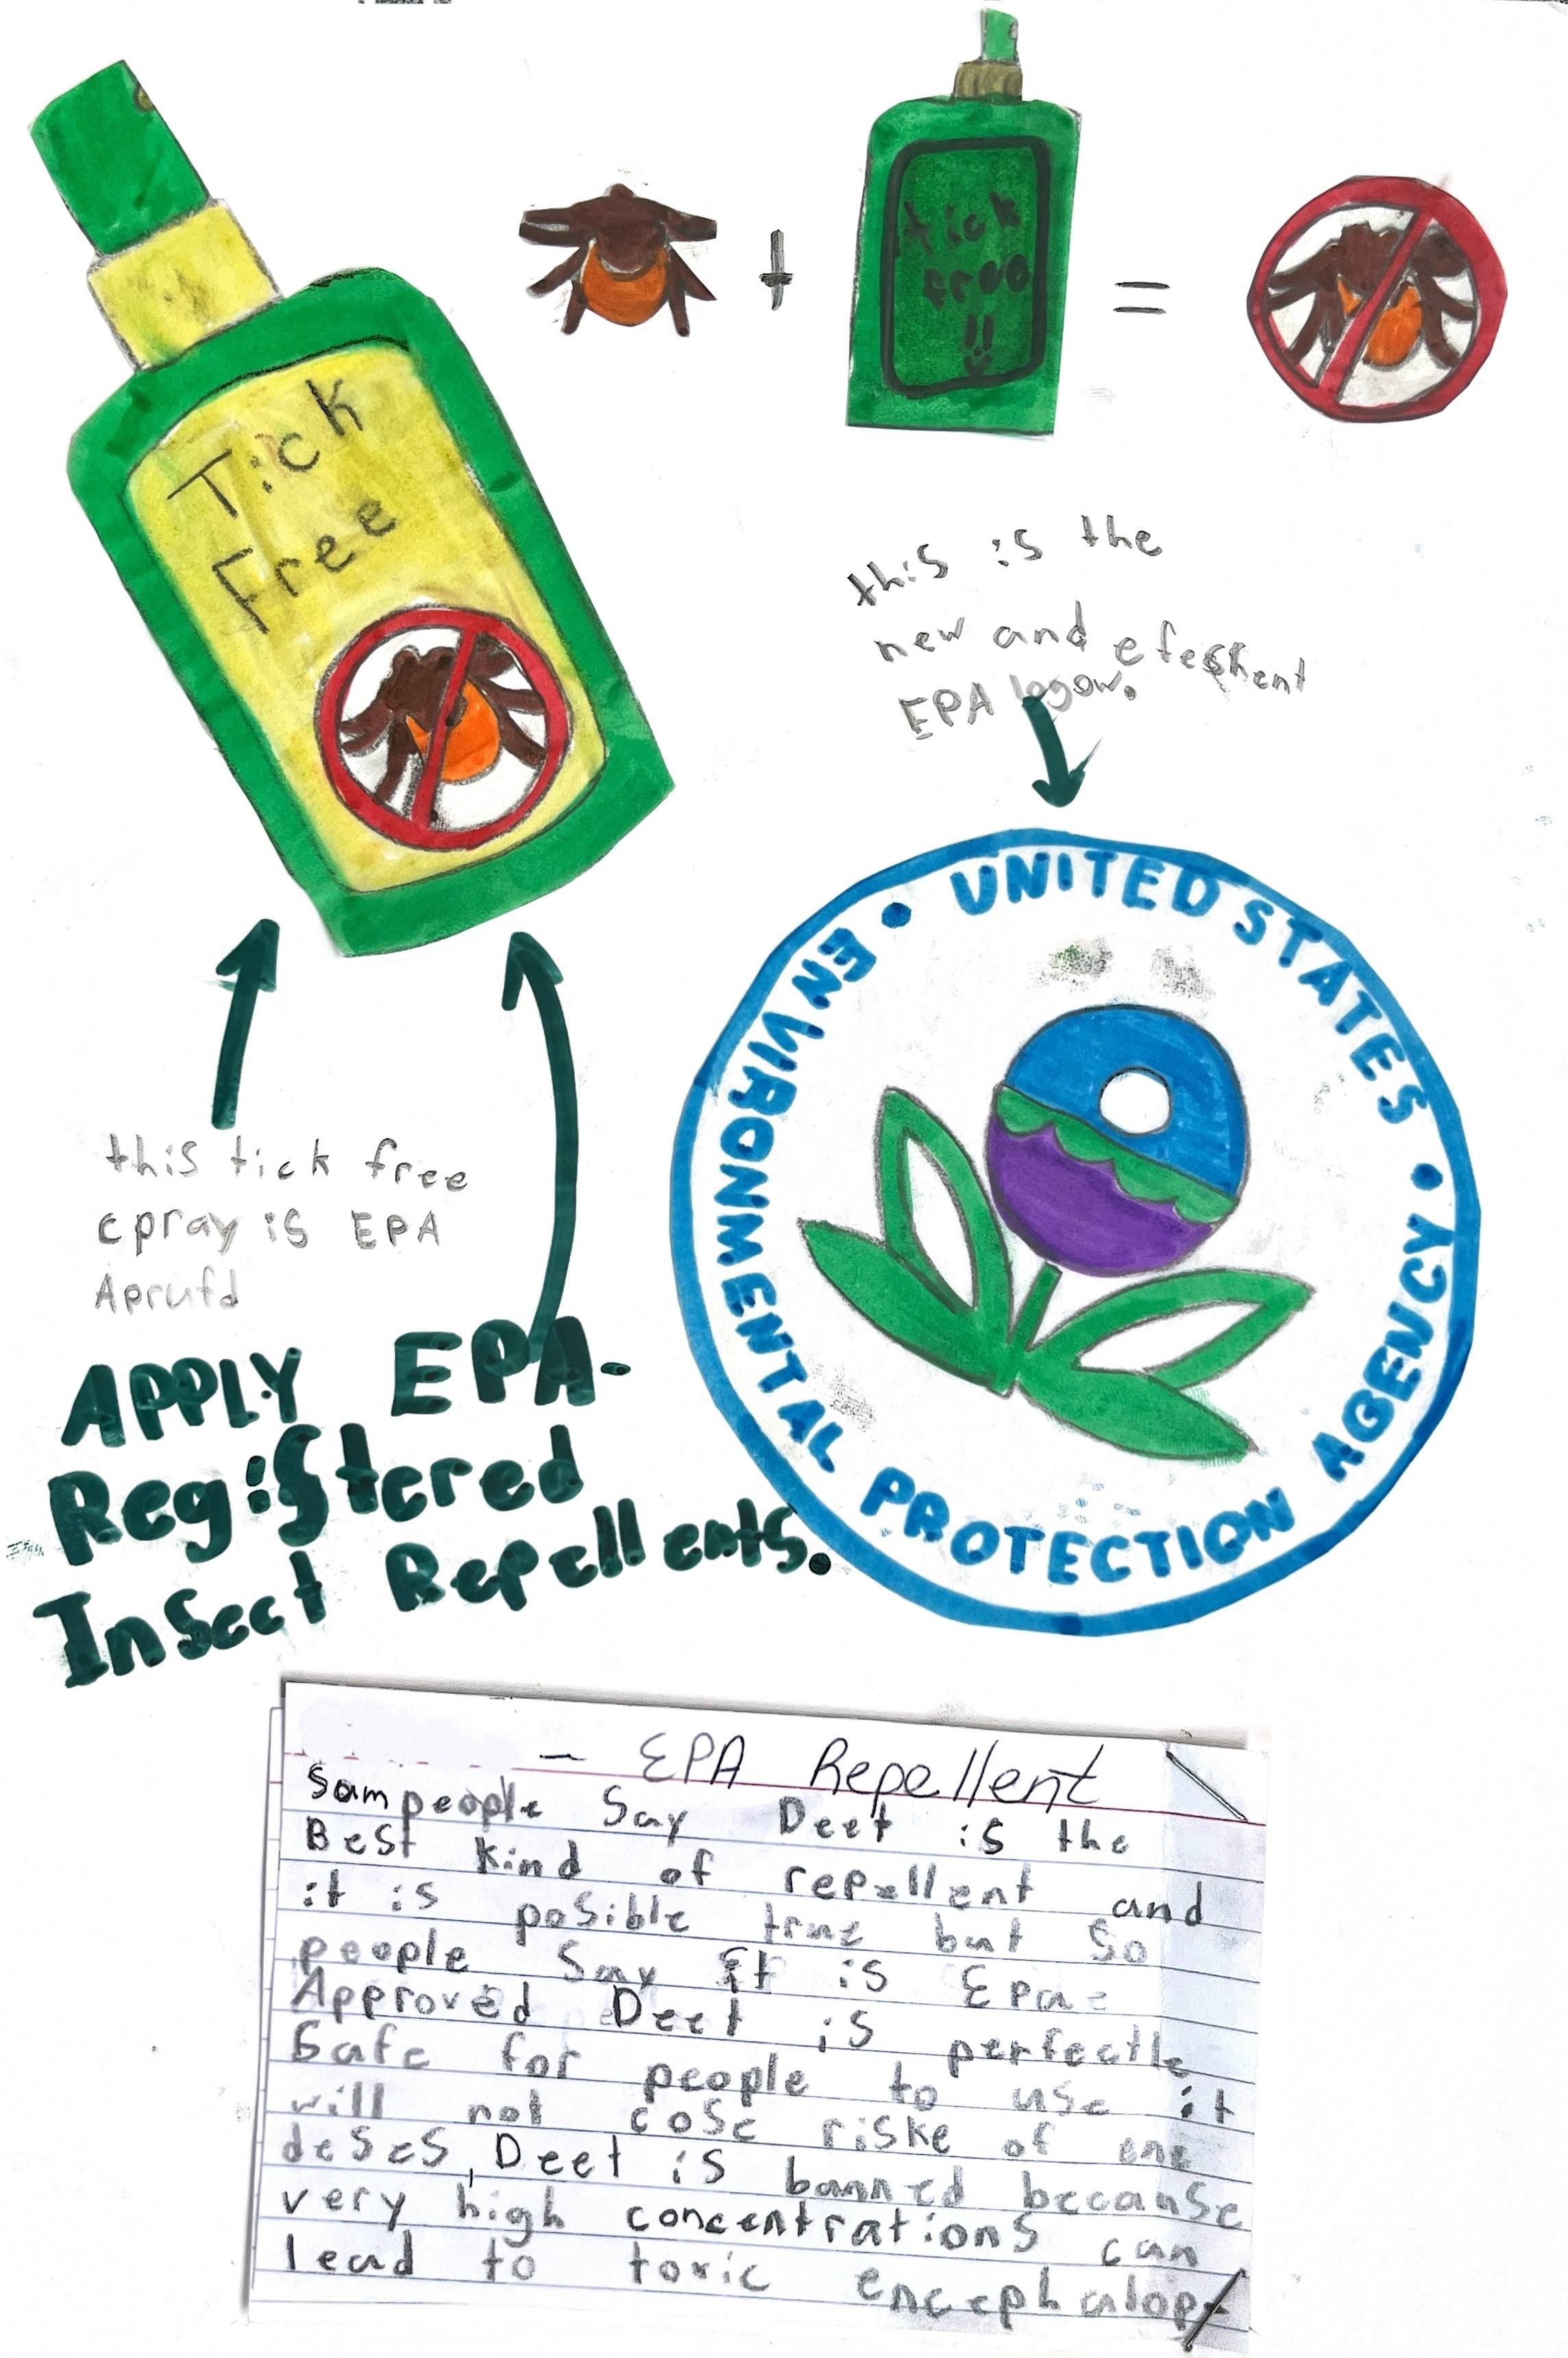 Tick
Free
tick
free
!!
this is the
new and efeskent
EPA logow.
UNITED STATES • ENVIRONMENTAL PROTECTION AGENCY •
this tick free
cpray is EPA
Aprufd
APPLY EPA-
Registered
Insect Repellents.
- EPA Repellent
Sam people Say Deet is the
Best kind of repellent and
it is posible true but So
people Say it is Epa
Approved Deet is perfectle
Safe for people to use it
will not cose riske of ene
deses, Deet is banned because
very high concentrations can
lead to toxic encephalop